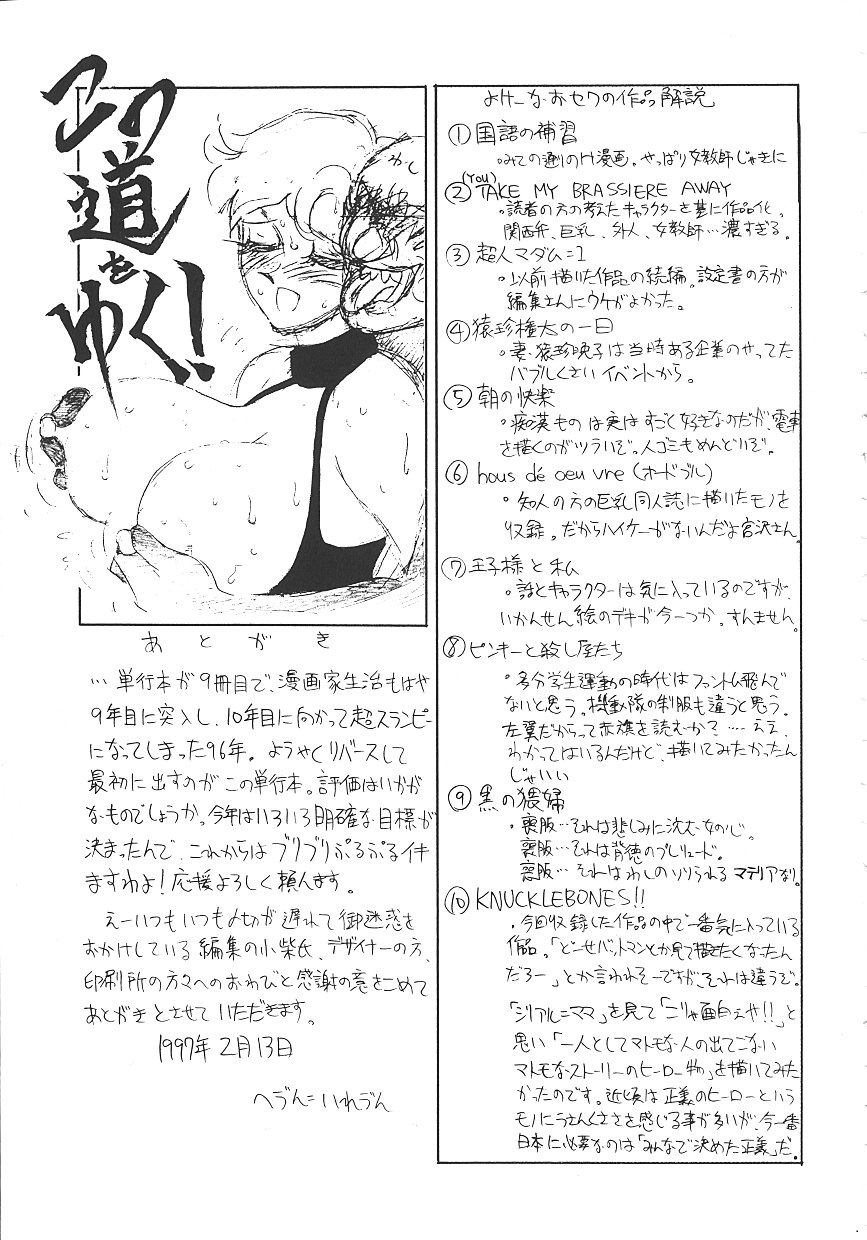 この
道
を
ゆく!
あとがき
… 単行本が9冊目で、漫画家生活もはや
9年目に突入し、10年目に向かって超スランピー
になってしまった96年。ようやくリバースして
最初に出すのがこの単行本。評価はいかが
なものでしょうか。今年はいろいろ明確な目標が
決まったんで、これからはブリブリぷるぷるイキ
ますわよ!応援よろしく頼んます。
えーいつもいつも〆切が遅れて御迷惑を
おかけしている編集の小柴氏、デザイナーの方、
印刷所の方々へのおわびと感謝の意をこめて
あとがきとさせていただきます。
1997年2月13日
へづん=いれづん
よけーなおセワの作品解説
①国語の補習
・みての通りのH漫画。やっぱり女教師じゃきに
② (You) TAKE MY BRASSIERE AWAY
・読者の方の考えたキャラクターを基に作品化。
関西弁、巨乳、外人、女教師…濃すぎる。
③超人マダム=1
・以前描いた作品の続編。設定書の方が
編集さんにウケがよかった。
④猿珍権太の一日
・妻・猿珍映子は当時ある企業のやってた
バブルくさいイベントから。
⑤朝の快楽
・痴漢ものは実はすごく好きなのだが、電車
を描くのがツライぞ。人ゴミもめんどいぞ。
⑥hous de oeuvre(オードブル)
・知人の方の巨乳同人誌に描いたモノを
収録。だからハイケーがないんだよ宮沢さん。
⑦王子様と私
・話とキャラクターは気に入っているのですが、
いかんせん絵のデキが今一つか。すんません。
⑧ピンキーと殺し屋たち
・多分学生運動の時代はファントム飛んで
ないと思う。機動隊の制服も違うと思う。
左翼だからって赤旗を読むか?……ええ、
わかってはいるんだけど、描いてみたかったん
じゃいい
⑨黒の猥婦
・喪服…それは悲しみに沈む女の心。
喪服…それは背徳のプレリュード。
喪服…それはわしのソソられるマテリアなり。
⑩KNUCKLEBONES!!
・今回収録した作品の中で一番気に入っている
作品。「どーせバットマンとか見て描きたくなったん
だろー」とか言われそーですが、それは違うぞ。
「シリアル=ママ」を見て「こりゃ面白えや!!」と
思い「一人としてマトモな人の出てこない
マトモなストーリーのヒーロー物」を描いてみた
かったのです。近頃は正義のヒーローという
モノにうさんくささを感じる事が多いが、今一番
日本に必要なのは「みんなで決めた正義」だ。